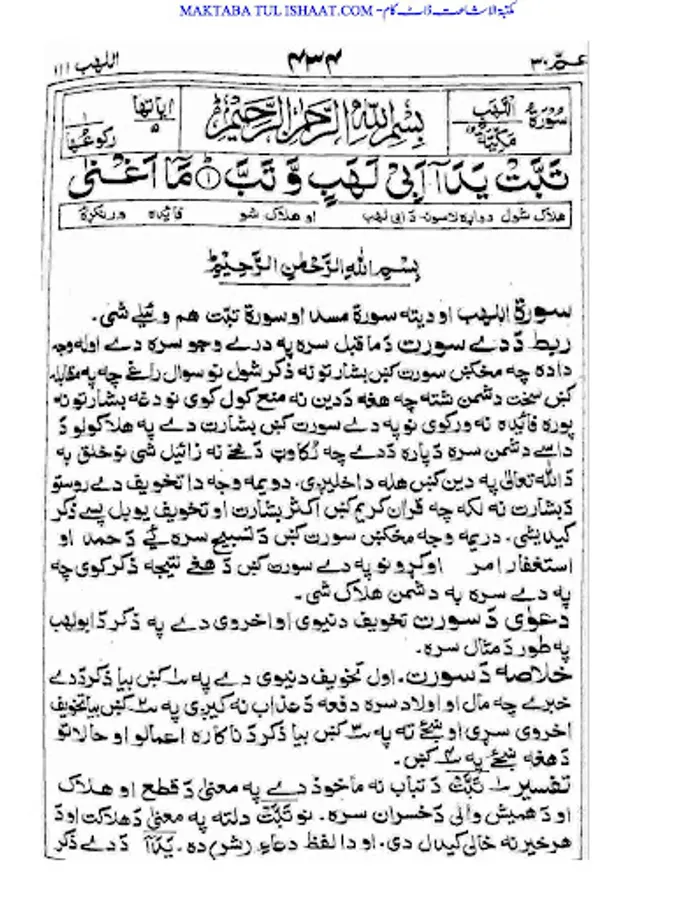 MAKTABA TUL ISHAAT.COM - مکتبۃ الاشاعت ڈاٹ کام
عمّ ۳۰
۴۳۴
اللهب ۱۱۱
سورة اللهب مكيّة
بِسْمِ اللّٰهِ الرَّحْمٰنِ الرَّحِيْمِ
اياتها ۵
ركوعها ۱
تَبَّتْ يَدَآ اَبِيْ لَهَبٍ وَّ تَبَّ ۱ مَآ اَغْنٰى
هلاک شول دواړه لاسونه د ابی لهب او هلاک شو فائده ورنکړه
بِسْمِ اللّٰهِ الرَّحْمٰنِ الرَّحِيْمِ
سورة اللهب او دیته سورة مسد او سورة تبّت هم وئیلے شی.
ربط د دے سورت د ماقبل سره په درے وجو سره دے اوله وجه
داده چه مخکښ سورت کښ بشارتونه ذکر شول نو سوال راغے چه په مقابله
کښ سخت دشمن شته چه هغه د دین نه منع کول کوی نو دغه بشارتونه
پوره فائده نه ورکوی نو په دے سورت کښ بشارت دے په هلاکولو د
داسے دشمن سره د پاره د دے چه رکاوټ د مخے نه زائیل شی نو خلق به
د الله تعالیٰ په دین کښ هله داخلیږی. دویمه وجه دا تخویف دے روستو
د بشارت نه لکه چه قرآن کریم کښ اکثر بشارت او تخویف یو بل پسے ذکر
کیدیشی. دریمه وجه مخکښ سورت کښ د تسبیح سره ئے د حمد او
استغفار امر اوکړو نو په دے سورت کښ د هغے نتیجه ذکر کوی چه
په دے سره به دشمن هلاک شی.
دعوٰی د سورت تخویف دنیوی او اخروی دے په ذکر د ابولهب
په طور د مثال سره.
خلاصه د سورت. اول تخویف دنیوی دے په ۱ کښ بیا ذکر د دے
خبرے چه مال او اولاد سره دفعه د عذاب نه کیږی په ۲ کښ بیا تخویف
اخروی سړی او ښځے ته په ۳ کښ بیا ذکر د ناکاره اعمالو او حالاتو
د هغه ښځے په ۴ کښ.
تفسیر ۱ تَبَّتْ د تباب نه ماخوذ دے په معنیٰ د قطع او هلاک
او د همیش والی د خسران سره. نو تَبَّتْ دلته په معنیٰ د هلاکت او د
هر خیر نه خالی کیدل دی. او دا لفظ دعاء (شر) ده. یَدَآ د دے ذکر